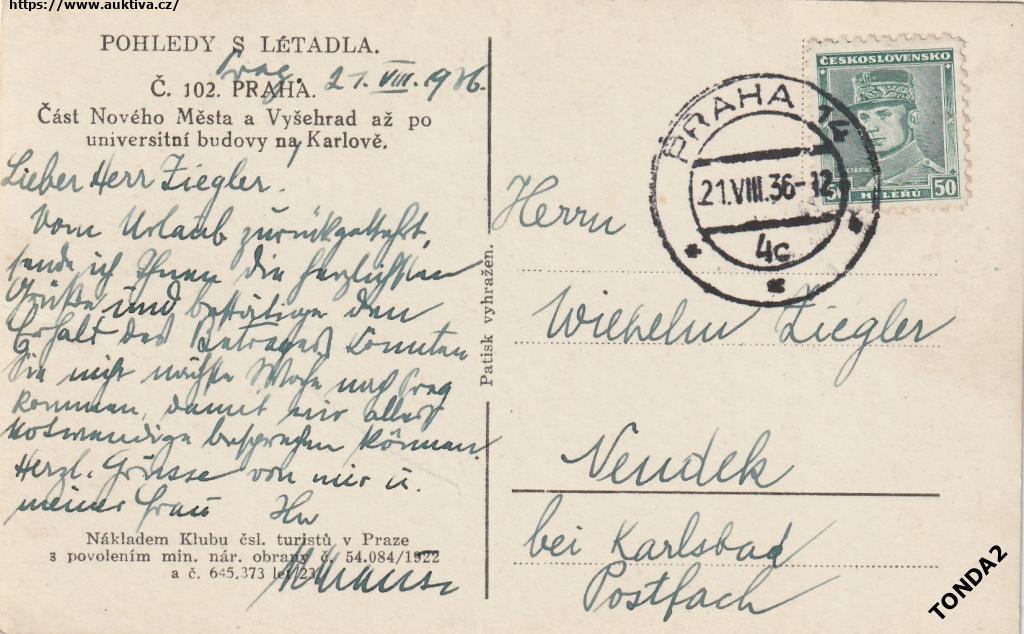 https://www.auktiva.cz/
POHLEDY S LÉTADLA.
Prag, 21. VIII. 1936.
Č. 102. PRAHA.
Část Nového Města a Vyšehrad až po
universitní budovy na Karlově.
Lieber Herr Ziegler!
Vom Urlaub zurückgekehrt,
sende ich Ihnen die herzlichsten
Grüße und bestätige den
Erhalt des Betrages. Könnten
Sie nicht nächste Woche nach Prag
kommen, damit wir alles
Notwendige besprechen können.
Herzl. Grüsse von mir u.
meiner Frau Ihr
Nákladem Klubu čsl. turistů v Praze
s povolením min. nár. obrany č. 54.084/1922
a č. 645.373 let/23
Patisk vyhražen.
ČESKOSLOVENSKO
50 HALÉŘŮ 50
PRAHA 14
21.VIII.36-12
4c
Herrn
Wilhelm Ziegler
Neudek
bei Karlsbad
Postfach
TONDA2